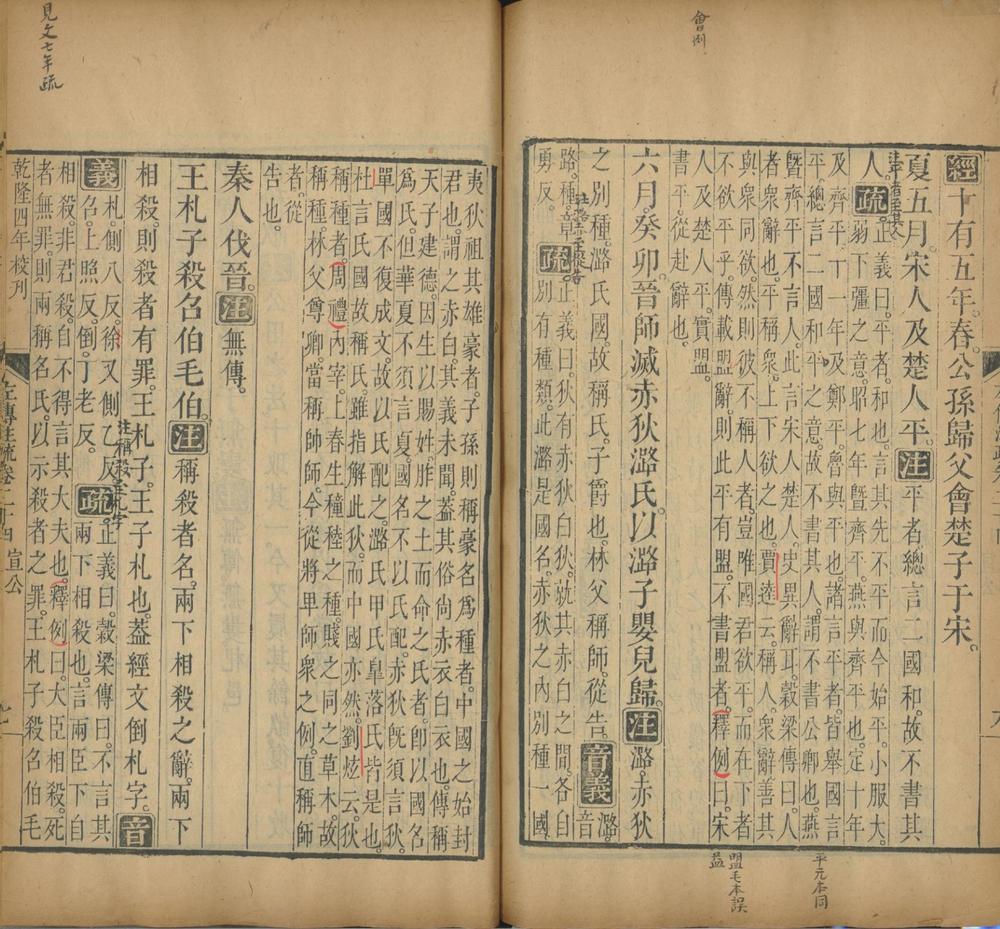 會例
經十有五年春公孫歸父會楚子于宋
夏五月宋人及楚人平注平者總言二國和故不書其
人疏正義曰平者和也言其先不平而今始平小服大
躬下彊之意昭七年暨齊平燕與齊平也定十年
及齊平十一年及鄭平魯與平也諸言平者皆舉國言
平總言二國和平之意故不書其人謂不書公卿也燕
暨齊平不言人此言宋人楚人史異辭耳穀梁傳曰人
者衆辭也平稱衆上下欲之也賈逵云稱人衆辭善其
與衆同欲然則彼不稱人者豈唯國君欲平而在下者
不欲平乎傳載盟辭則此平有盟不書盟者釋例曰宋
人及楚人平實盟
書平從赴辭也
六月癸卯晉師滅赤狄潞氏以潞子嬰兒歸注潞赤狄
之別種潞氏國故稱氏子爵也林父稱師從告音義潞音
路種章
勇反疏正義曰狄有赤狄白狄就其赤白之間各自
別有種類此潞是國名赤狄之內別種一國
平元本同
盟毛本誤
益
見文七年疏
夷狄祖其雄豪者子孫則稱豪名爲種者中國之始封
君也謂之赤白其義未聞蓋其俗尚赤衣白衣也傳稱
天子建德因生以賜姓胙之土而命之氏者卽以國名
爲氏但華夏不須言夏國名不以氏配赤狄旣須言狄
單國不復成文故以氏配之潞氏甲氏皐落氏皆是也
杜言氏國故稱氏雖指解此狄而中國亦然劉炫云狄
稱種者周禮內宰上春生穜稑之種賤之同之草木故
稱種林父尊卿當稱師師今從將卑師衆之例直稱師
者從
告也
秦人伐晉注無傳
王札子殺召伯毛伯注稱殺者名兩下相殺之辭兩下
相殺則殺者有罪王札子王子札也蓋經文倒札字音
義札側八反徐又側乙反
召上照反倒丁老反疏正義曰穀梁傳曰不言其
兩下相殺也言兩臣下自
相殺非君殺自不得言其大夫也釋例曰大臣相殺死
者無罪則兩稱名氏以示殺者之罪王札子殺召伯毛
乾隆四年校刊
左傳注疏卷二十四 宣公